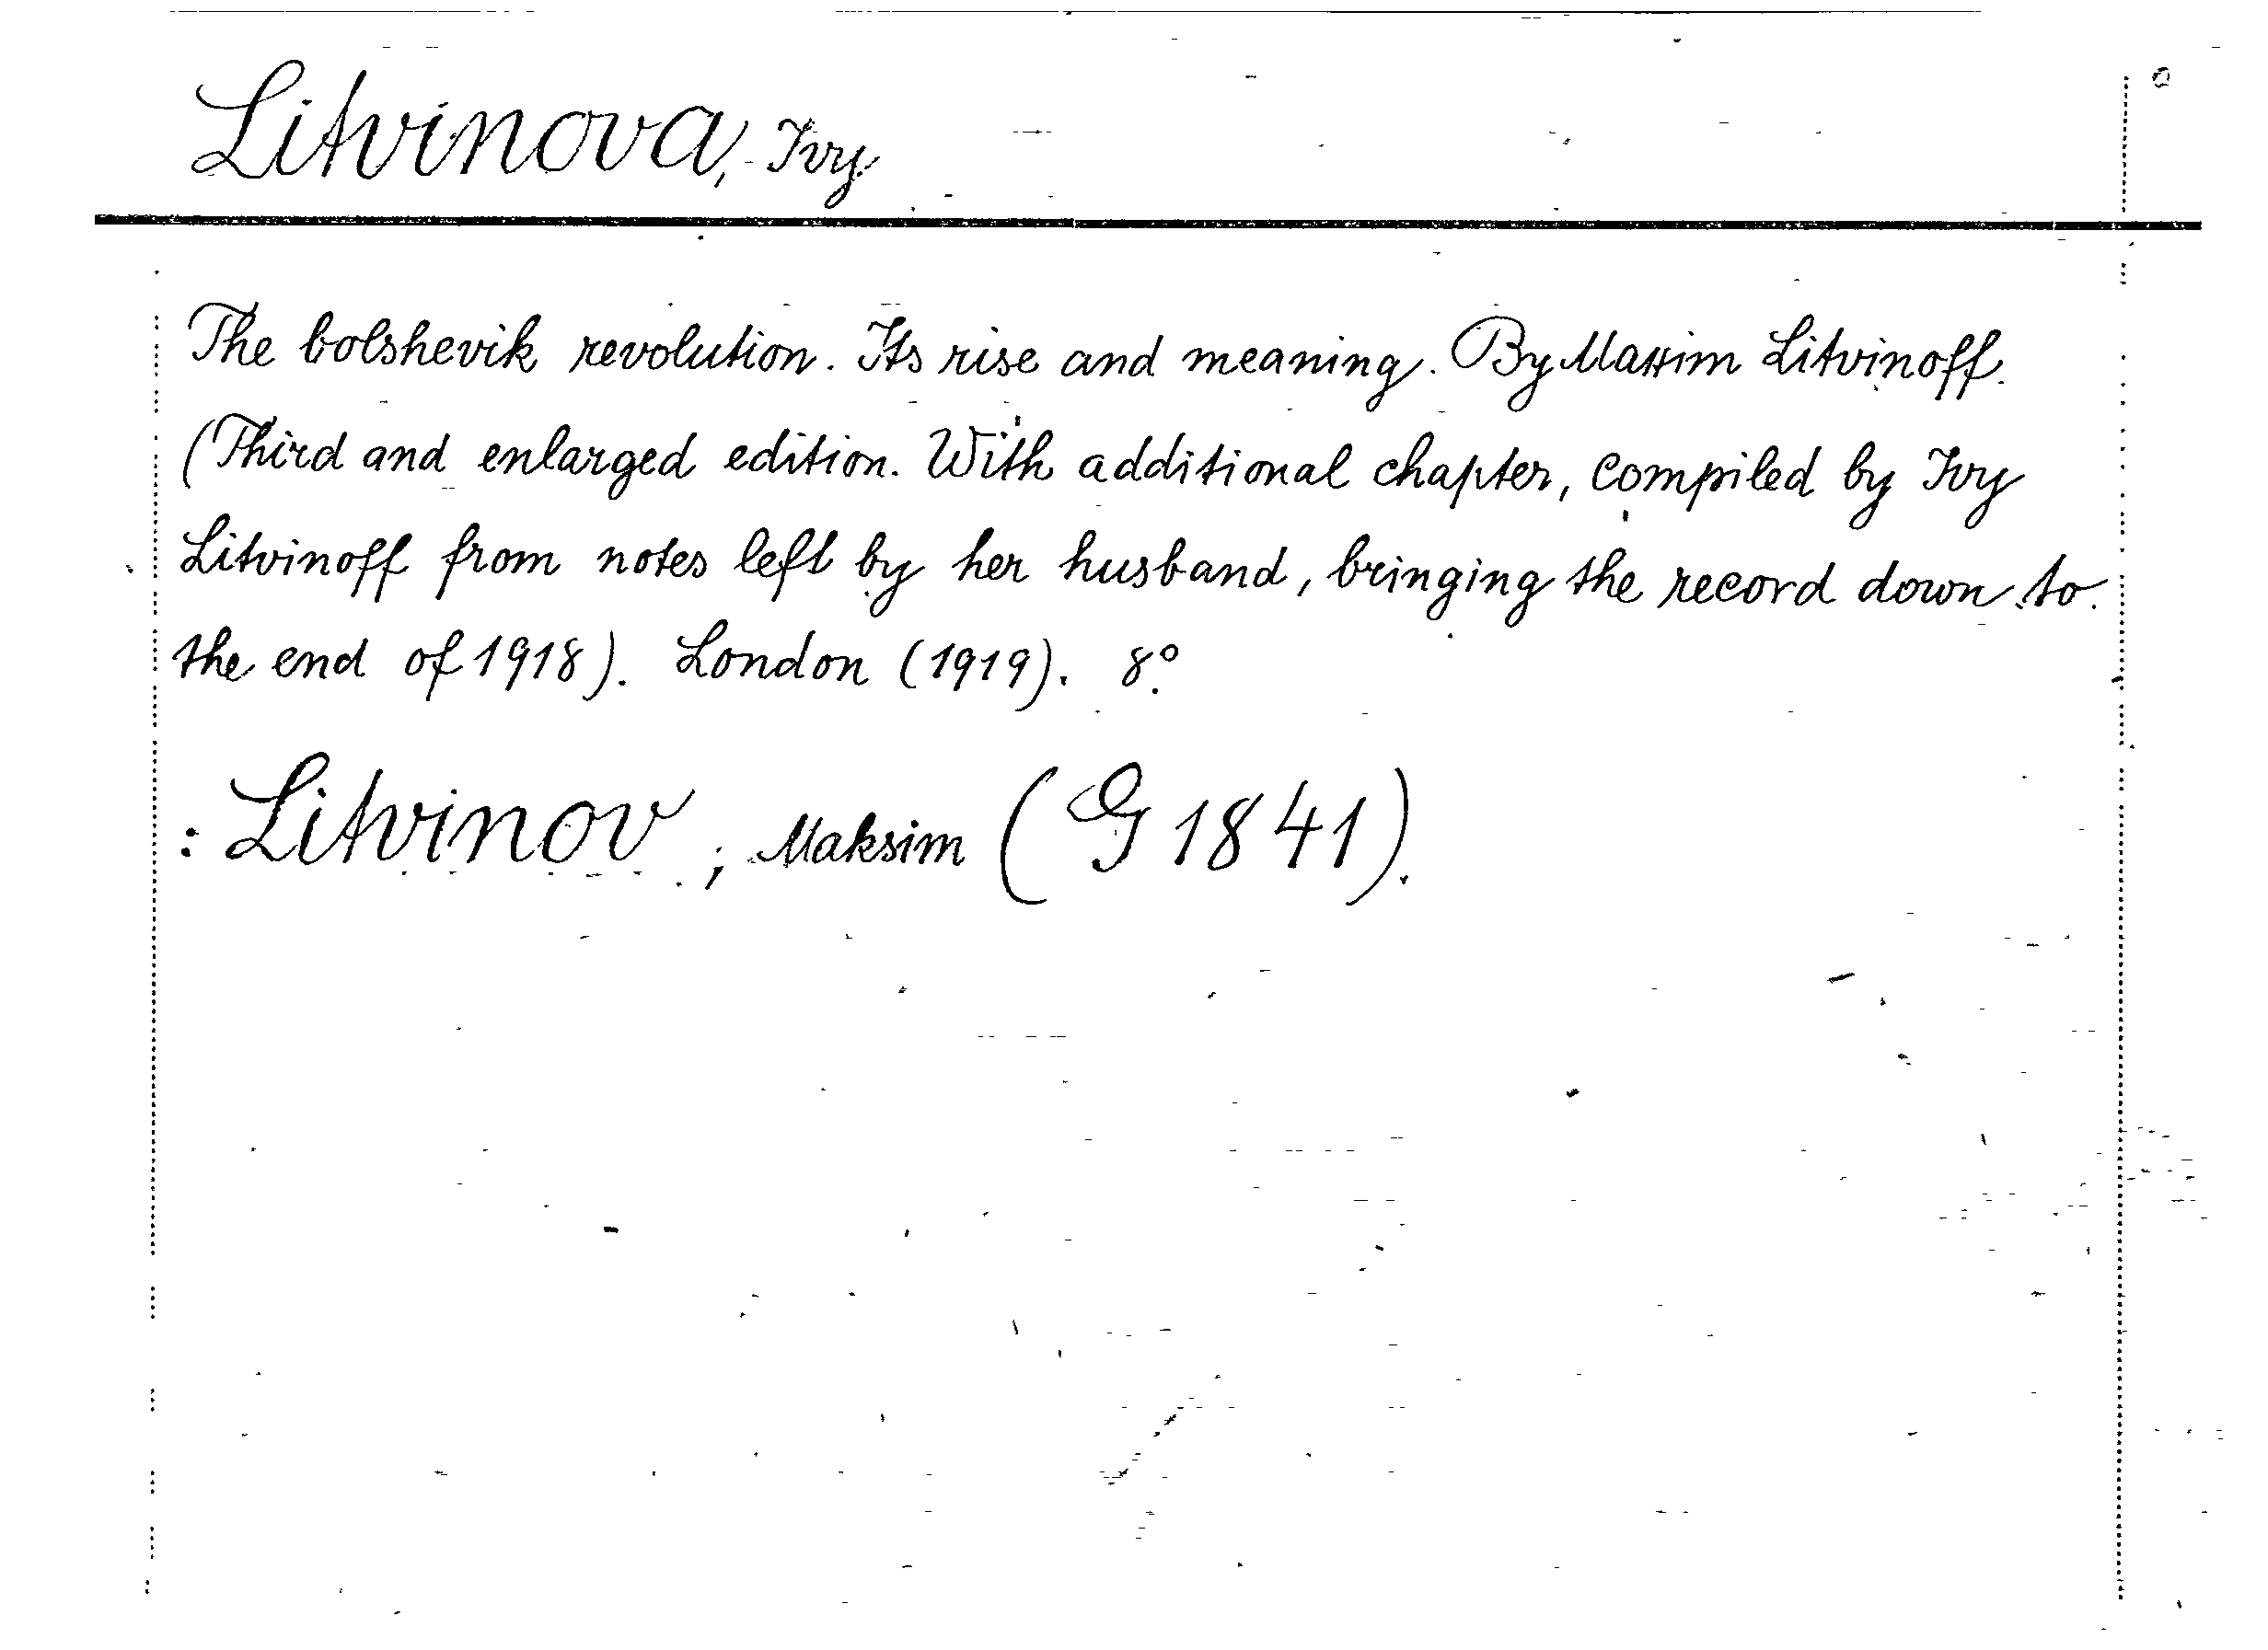 Litvinova, Ivy.
The bolshevik revolution. Its rise and meaning. By Maxim Litvinoff.
(Third and enlarged edition. With additional chapter, compiled by Ivy
Litvinoff from notes left by her husband, bringing the record down to
the end of 1918). London (1919). 8°.
: Litvinov, Maksim (G 1841).